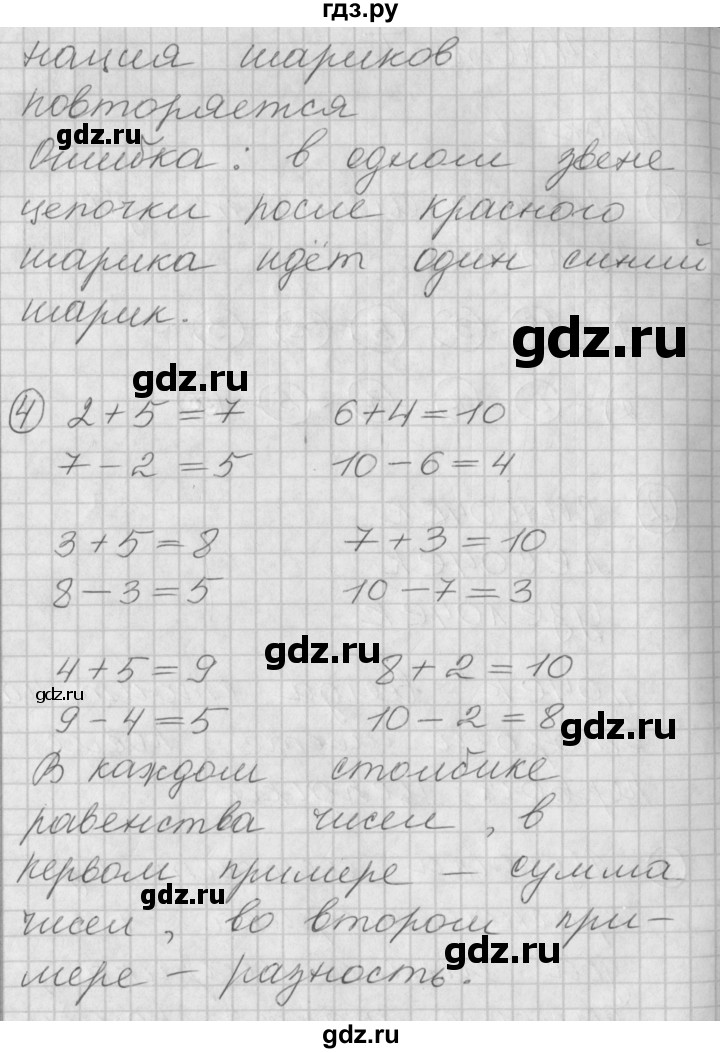 гдз.ру
нация шариков
повторяется
gdz.ru
Ошибка: в одном звене
цепочки после красного
шарика идёт один синий
шарик.
gdz.ru
gdz.ru
④ 2+5=7 6+4=10
7-2=5 10-6=4
3+5=8 7+3=10
8-3=5 10-7=3
gdz.ru
4+5=9 8+2=10
gdz.ru
9-4=5 10-2=8
gdz.ru
В каждом столбике
равенства чисел, в
первом примере - сумма
gdz.ru
чисел, во втором при-
gdz.ru
мере - разность.
gdz.ru